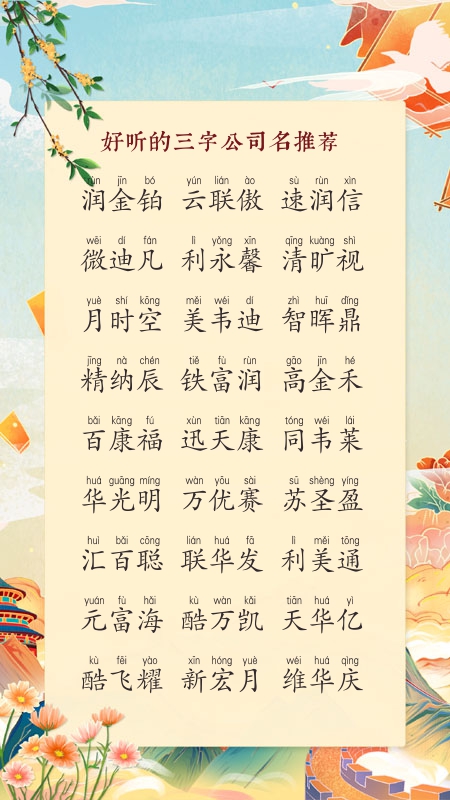 好听的三字公司名推荐
rùn jīn bó yún lián ào sù rùn xìn
润金铂 云联傲 速润信
wēi dí fán lì yǒng xīn qīng kuàng shì
微迪凡 利永馨 清旷视
yuè shí kōng měi wéi dí zhì huī dǐng
月时空 美韦迪 智晖鼎
jīng nà chén tiě fù rùn gāo jīn hé
精纳辰 铁富润 高金禾
bǎi kāng fú xùn tiān kāng tóng wéi lái
百康福 迅天康 同韦莱
huá guāng míng wàn yōu sài sū shèng yíng
华光明 万优赛 苏圣盈
huì bǎi cōng lián huá fā lì měi tōng
汇百聪 联华发 利美通
yuán fù hǎi kù wàn kǎi tiān huá yì
元富海 酷万凯 天华亿
kù fēi yào xīn hóng yuè wéi huá qìng
酷飞耀 新宏月 维华庆